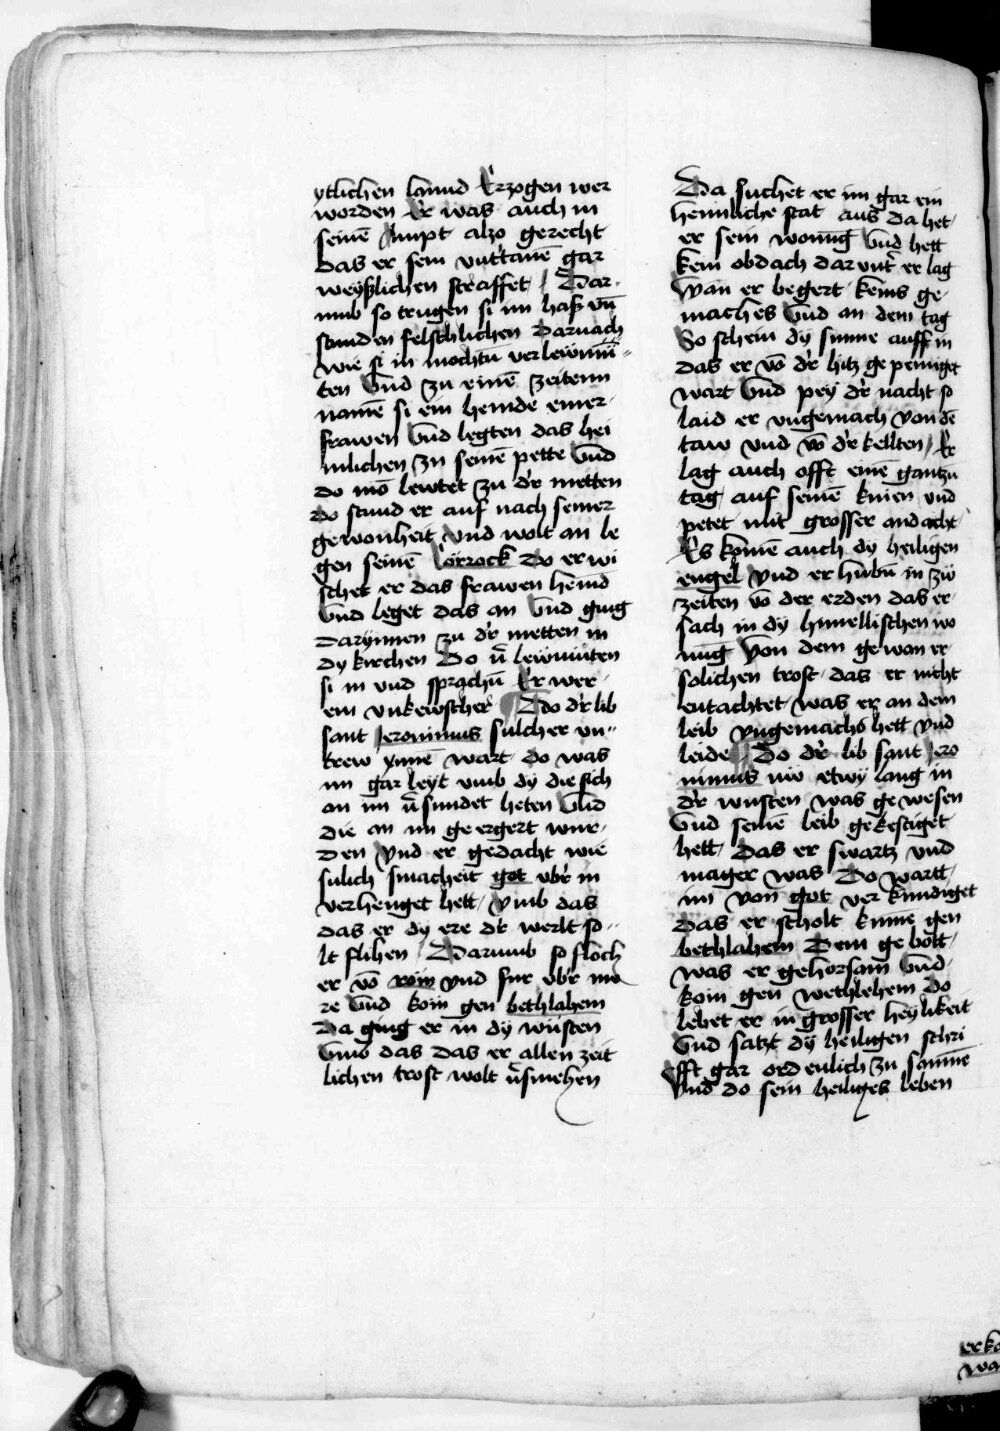 ytlichen lannd Erzogen wer
worden Er was auch in
seinē Ampt also gerecht
das er sein vnttanē gar
weyßlichen straffet / Dar-
vmb so trugen si im haß vn̄
stunden felschlichen darnach
wie si in mochtn verlewmū-
ten Vnd zu einē zeitenn
namē si ein hemde einer
frawen Vnd legten das hei
mlichen zu seinē pette Vnd
do mō lewtet zu dr metten
do stund er auf nach seiner
gewonheit vnd wolt an le
gen seinē Korrock do erwi
schet er das frawen hemd
Vnd leget das an Vnd ging
darynnen zu dr metten in
dy kirchen Do v̄lewmūten
si in vnd sprachn̄ Er wer
ein vnkewscher Do dr lib
sant Jeronimus sulcher vn-
trew ynnē wart do was
im gar leyt vmb dy die sich
an im v̄sundet heten Vnd
die an im geergert wur-
den Vnd er gedacht wie
sulich smacheit got vbr in
verhenget hett / vmb das
das er dy ere dr werlt so-
lt flihen / Darumb so floch
er vō rom vnd fur vbr me
re Vnd kom gen bethlahem
Da ging er in dy wüsten
Vmb das das er allen zeit
lichen trost wolt v̄smehen
Da suchet er im gar ein
heimliche stat aus da het
er sein wonūg Vnd hett
kein obdach dar vntr er lag
Wan er begert keins ge-
maches Vnd an dem tag
So schein dy sunne auff in
das er vō dr hitz gepeiniget
wart Vnd pey dr nacht so
laid er vngemach von dē
taw vnd vō dr kellten / Er
lag auch offt einē gantzn
tag auf seinē knien vnd
petet mit grosser andacht
Es komē auch dy heiligen
engel vnd er hubn̄ in zw
zeiten vō der erden das er
sach in dy himellischen wo
nūg Von dem gewan er
solichen trost das er nicht
entachtet was er an dem
leib vngemachs hett vnd
leide Do dr lib sant Jero
nimus nw etwy lang in
dr wusten was gewesen
Vnd seinē leib gekestiget
hett das er swartz vnd
mager was Do wartt
im von got verkundiget
das er scholt kumē gen
bethlahem Dem gebott
was er gehorsam Vnd
kom gen wethlehem do
lebet er in grosser heylikeit
Vnd satzt dy heiligen schri
fft gar ordenlich zu samē
Vnd do sein heiliges leben